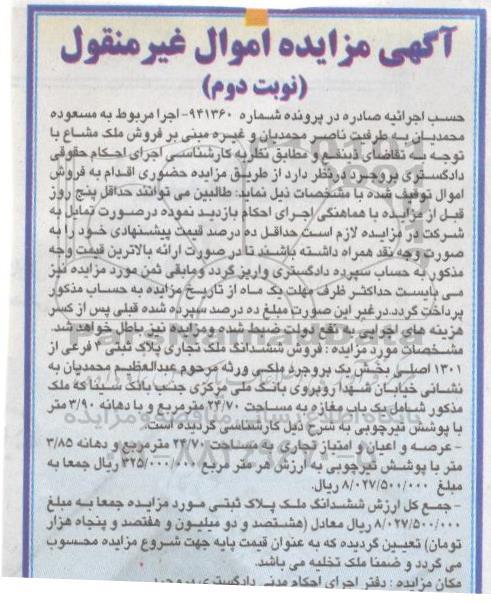 آگهی مزایده اموال غیرمنقول
(نوبت دوم)
حسب اجرائیه صادره در پرونده شماره ۹۴۱۳۶۰- اجرا مربوط به مسعوده
محمدیان به طرفیت ناصر محمدیان و غیره مبنی بر فروش ملک مشاع با
توجه به تقاضای ذینفع و مطابق نظریه کارشناسی اجرای احکام حقوقی
دادگستری بروجرد درنظر دارد از طریق مزایده حضوری اقدام به فروش
اموال توقیف شده با مشخصات ذیل نماید: طالبین می توانند حداقل پنج روز
قبل از مزایده با هماهنگی اجرای احکام بازدید نموده درصورت تمایل به
شرکت در مزایده لازم است حداقل ده درصد قیمت پیشنهادی خود را به
صورت وجه نقد همراه داشته باشند تا در صورت ارائه بالاترین قیمت وجه
مذکور به حساب سپرده دادگستری واریز گردد ومابقی ثمن مورد مزایده نیز
می بایست حداکثر ظرف مهلت یک ماه از تاریخ مزایده به حساب مذکور
پرداخت گردد.درغیر این صورت مبلغ ده درصد سپرده شده قبلی پس از کسر
هزینه های اجرایی به نفع دولت ضبط شده ومزایده نیز باطل خواهد شد.
مشخصات مورد مزایده : فروش ششدانگ ملک تجاری پلاک ثبتی ۲ فرعی از
۱۳۰۱ اصلی بخش یک بروجرد ملکی ورثه مرحوم عبدالعظیم محمدیان به
نشانی خیابان شهدا روبروی بانک ملی مرکزی جنب بالک سینا که ملک
مذکور شامل یک باب مغازه به مساحت ۲۴/۷۰ مترمربع و با دهانه ۳/۹۰ متر
با پوشش تیرچوبی به شرح ذیل کارشناسی گردیده است.
- عرصه و اعیان و امتیاز تجاری به مساحت ۲۴/۷۰ متر مربع و دهانه ۳/۸۵
متر با پوشش تیرچوبی به ارزش هر متر مربع ۳۲۵/۰۰۰/۰۰۰ ریال جمعا به
مبلغ ۸/۰۲۷/۵۰۰/۰۰۰ ریال.
- جمع کل ارزش ششدانگ ملک پلاک ثبتی مورد مزایده جمعا به مبلغ
۸/۰۲۷/۵۰۰/۰۰۰ ریال معادل (هشتصد و دو میلیون و هفتصد و پنجاه هزار
تومان) تعیین گردیده که به عنوان قیمت پایه جهت شروع مزایده محسوب
می گردد و ضمنا ملک تخلیه می باشد.
مکان مزایده : دفتر اجرای احکام مدنی دادگستری بروجرد